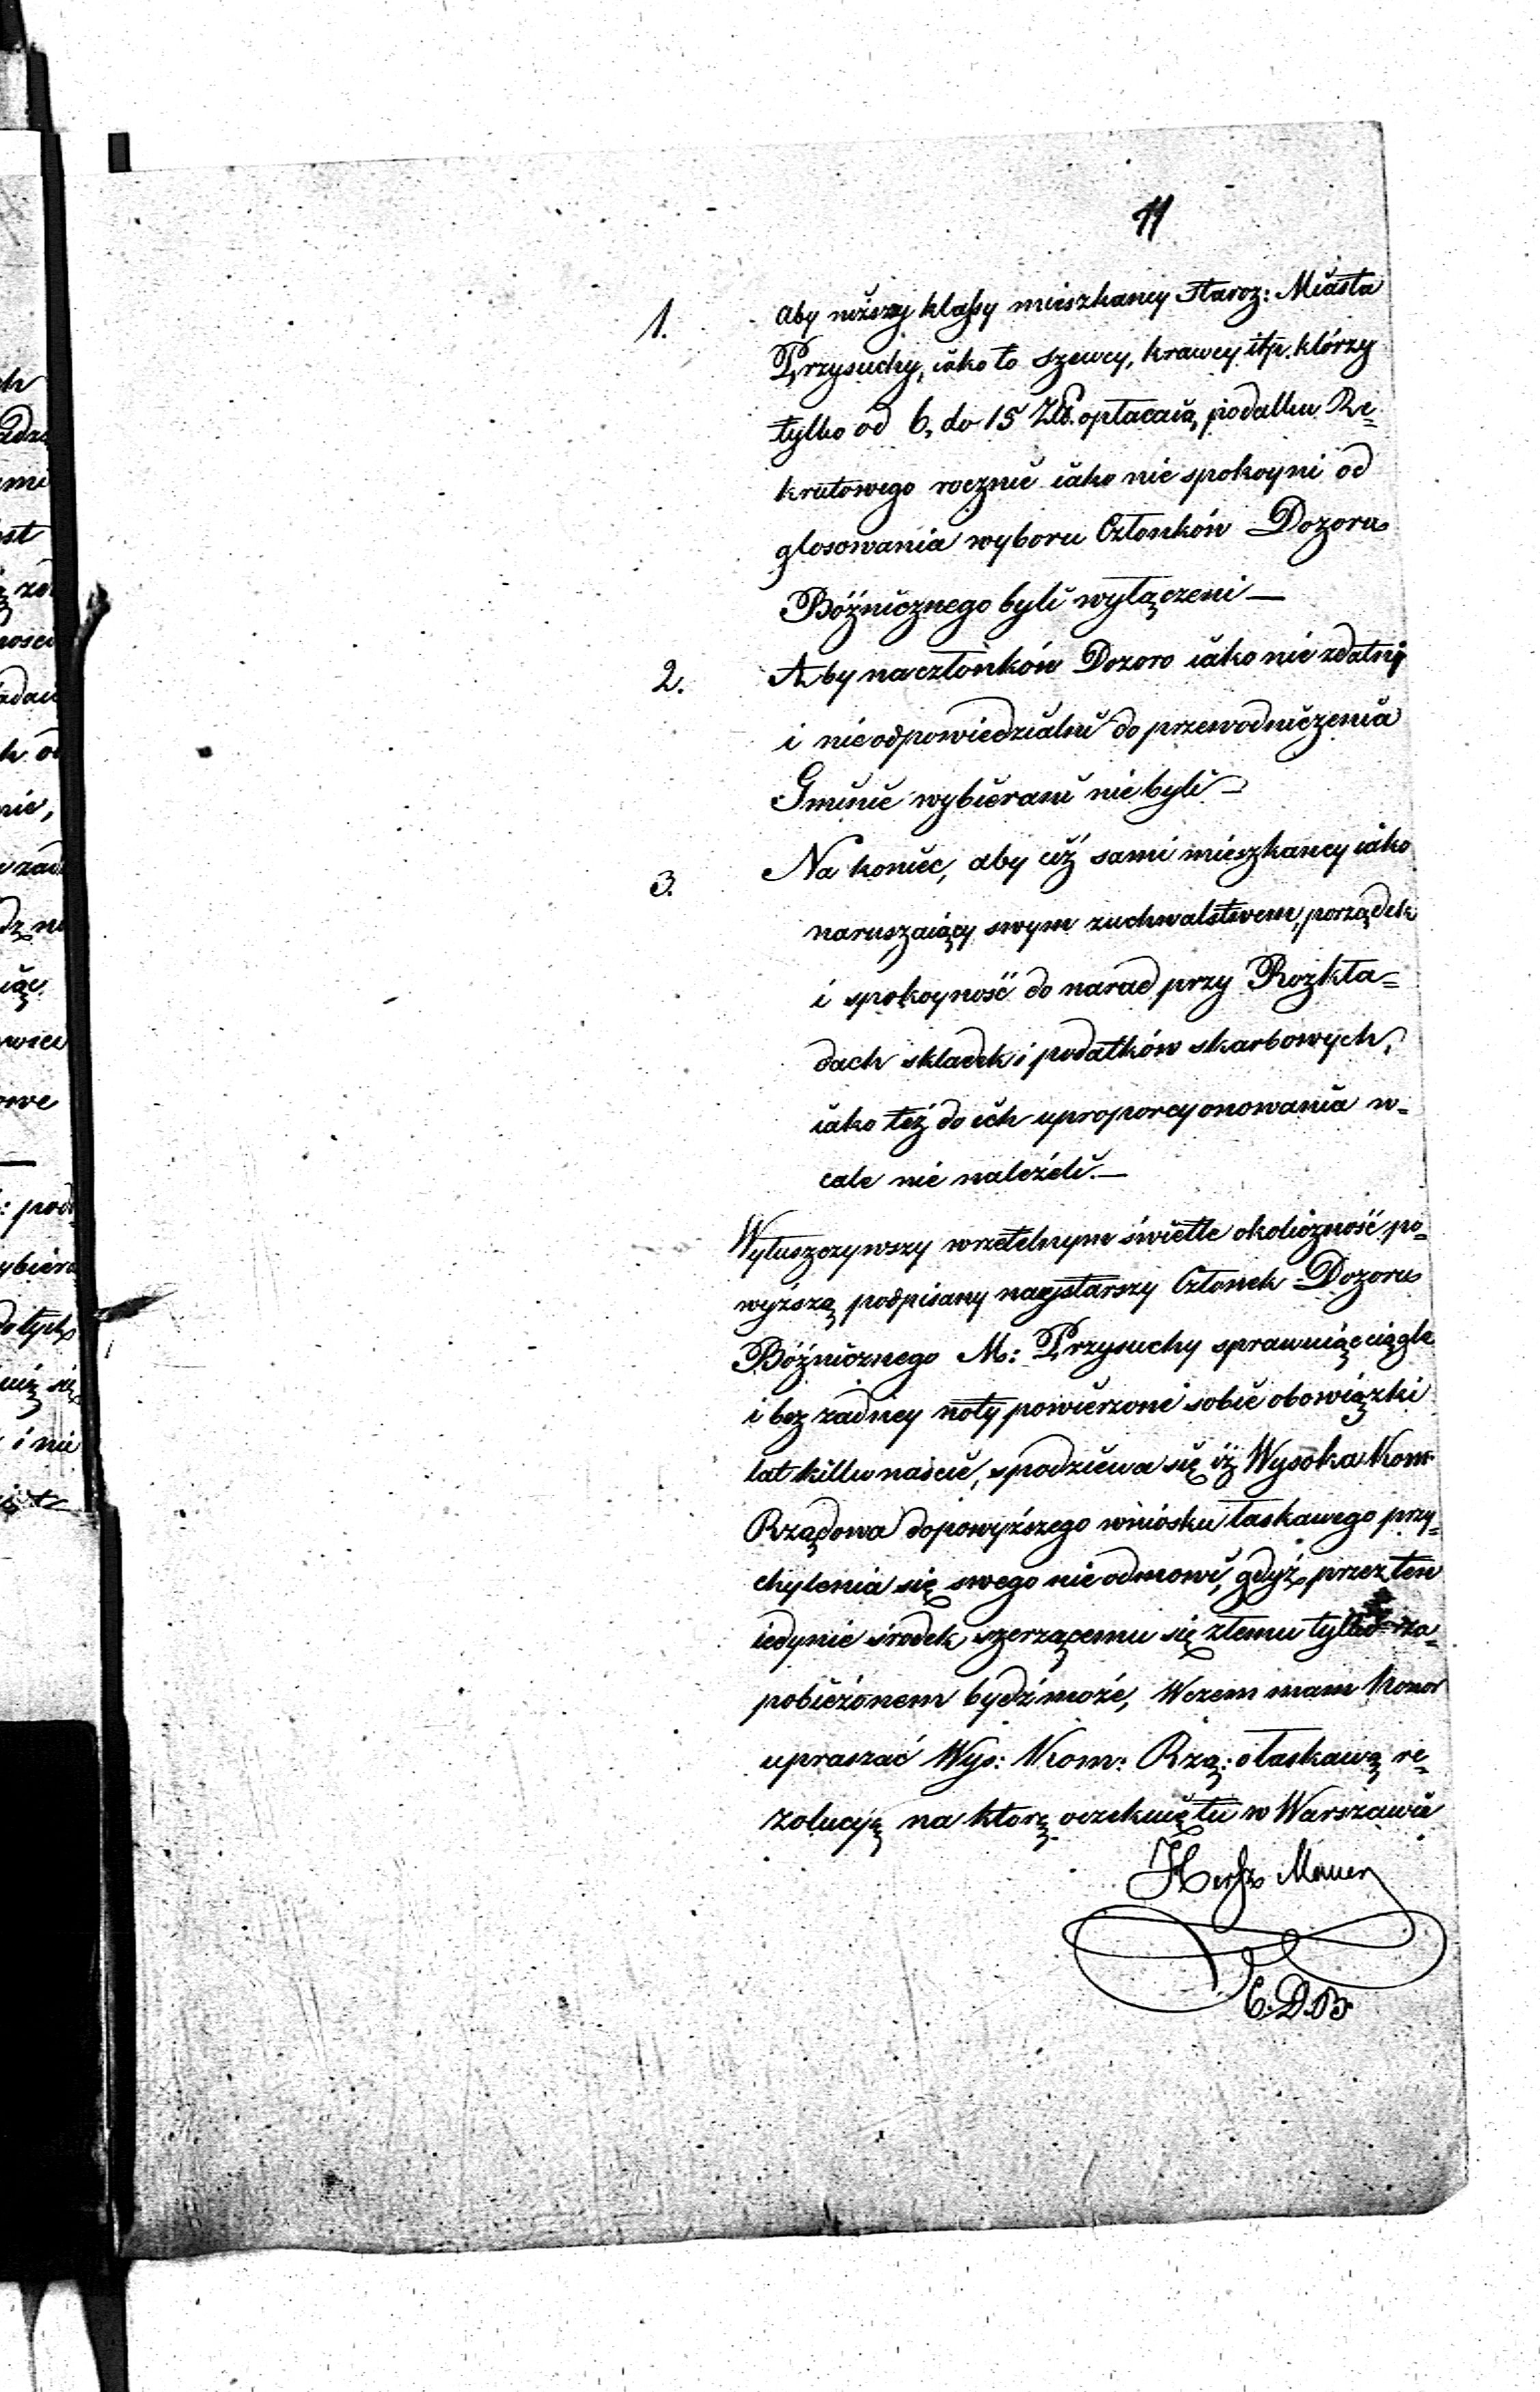 11
1. Aby niższey klassy mieszkancy Staroz: Miasta
Przysuchy, iako to Szewcy, krawcy itp. którzy
tylko od 6, do 15 Złł. opłacaią podatku Re=
krutowego rocznie iako nie spokoyni od
glosowania wyboru Członków Dozoru
Bóźnicznego byli wyłączeni —
2. Aby na członków Dozoro iako nie zdatni
i nieodpowiedzialni do przewodniczenia
Gminie wybierani nie byli —
3. Na koniec, aby ciż sami mieszkancy iako
naruszaiący swym zuchwalstwem, porządek
i spokoyność do narad przy Rozkła=
dach składek i podatków skarbowych,
iako też do ich uproporcyonowania w=
cale nie należeli. —
Wyłuszczywszy w rzetelnym świetle okoliczność po=
wyższą podpisany naystarszy Członek Dozoru
Bóźnicznego M: Przysuchy sprawuiąc ciągle
i bez zadney noty powierzone sobie obowiązki
lat kilkunaście, spodziewa się iż Wysoka Kom
Rządowa do powyższego wniosku łaskawego przy=
chylenia się swego nie odmowi, gdyż przez ten
iedynie środek szerzącemu się złemu tylko za=
pobieżonem bydź może, Wczem mam honor
upraszać Wys: Kom: Rzą: o łaskawą re=
zolucyę na ktorę oczekuię tu w Warszawie
Hersz Mauer
C. D. B.